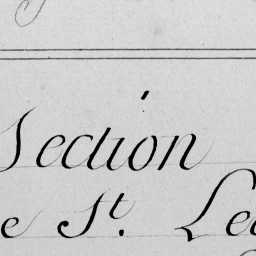 Section
e St. Le